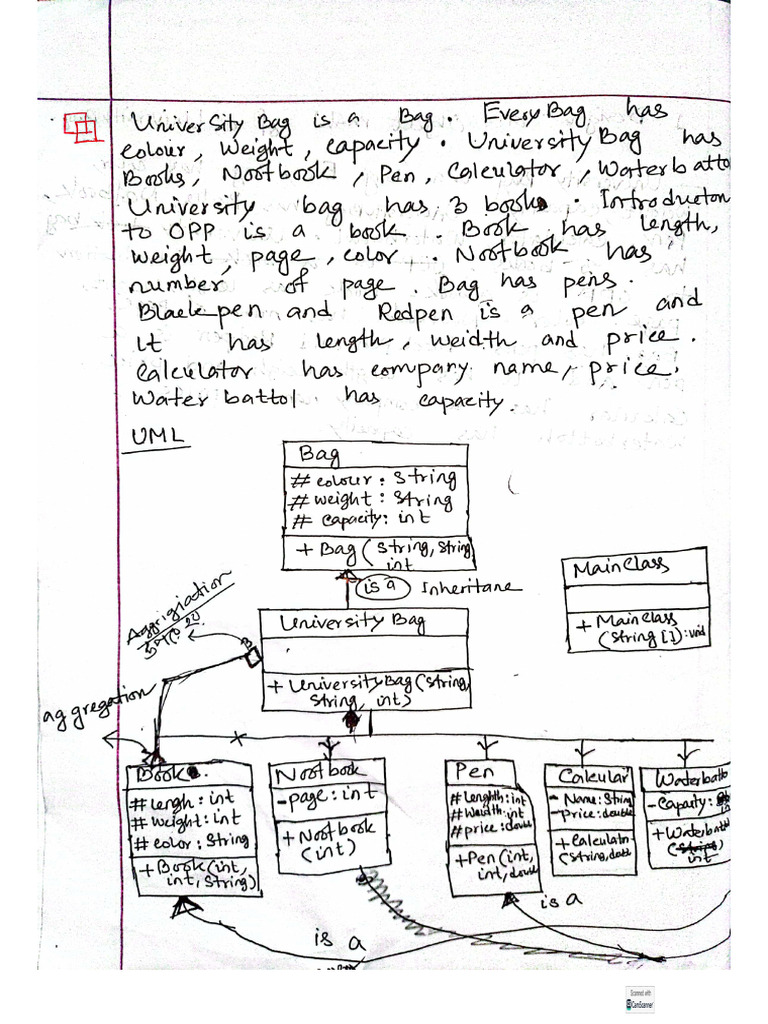 University Bag is a Bag. Every Bag has
colour, weight, capacity. University Bag has
Books, Nootbook, Pen, Calculator, Waterbatto
University bag has 3 books. Introducton
to OPP is a book. Book has length,
weight, page, color. Nootbook has
number of page. Bag has pens.
Black pen and Redpen is a pen and
it has length, weidth and price.
Calculator has company name, price.
Water battol has capacity.
UML
Bag
# colour: String
# weight: String
# capacity: int
+ Bag (String, String
int
is a Inheritane
MainClass
+ MainClass
(String []): void
University Bag
+ UniversityBag(String,
String, int)
Aggrigiation
aggregation
Book
# lengh: int
# weight: int
# color: String
+ Book(int,
int, String)
Nootbook
- page: int
+ Nootbook
(int)
Pen
# Lenghth: int
# Weidth: int
# price: double
+ Pen(int,
int, double
Calcular
- Name: String
- Price: double
+ Calculatr
(String, dobl
Waterbatto
- Capacity:
+ Waterbatt
int
is a
is a
Scanned with
CamScanner